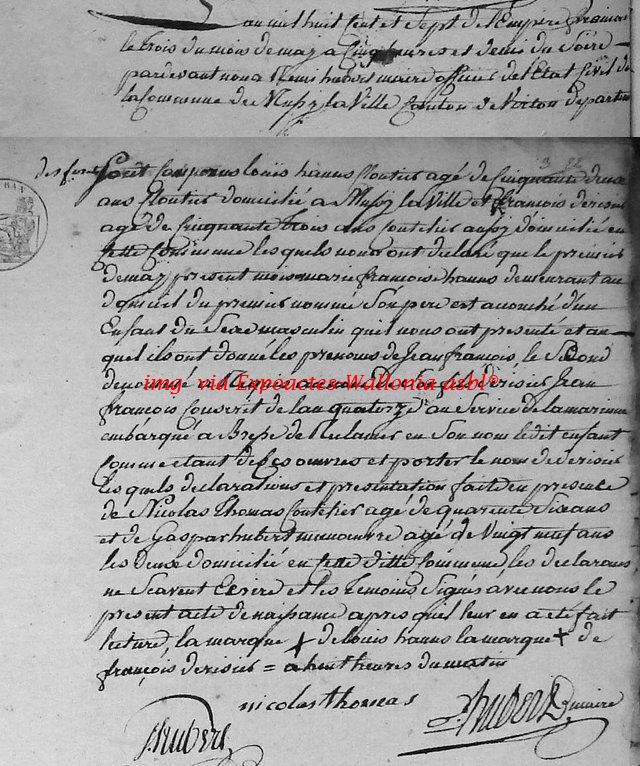 an mil huit cent et sept de l'Empire francais
le trois du mois de may a cinq heures et demis du Soire
pardevant nous Remi hubert maire officier de l'Etat Civil de
la Commune de Mussy la Ville Canton de Virton departem
des forets Sont Comparus louis hanns Cloutier agé de Cinquante deux
ans Cloutier domicilié a Mussy la Ville et françois derisois
agé de Cinquante trois ans Coutelier aussy domicilié en
Cette Commune les quels nous ont declaré que le premier
de may present mois marie françoise hanns demeurant au
domicil du premier nommé Son pere est accouché d'un
Enfant du Sexe masculin qu'il nous ont presenté et au
quel ils ont donné les prenoms de Jean françois, le Second
img via Expoactes Wallonia asbl®
derisois Jean
françois Conscrit de l'an quatorze au Service de la marinne
embarqué a Brest de Reclamer en Son nom ledit enfant
Comme etant de Ses oeuvres et porter le nom de derisois
les quels declarations et presentation fait en presence
de Nicolas Thomas Coutelier agé de quarente Six ans
et de Gaspar hubert manoeuvre agé de Vingt neuf ans
les Deux domicilié en Cette ditte Commune, les declarans
ne Scavent Ecrire et les temoins Signés avec nous le
present acte de naissance apres qu'il leur en a eté fait
lecture, la marque X de louis hanns la marque + de
françois derisois = a huit heures du matin
nicolas thomas
hubert
hubert Dmaire